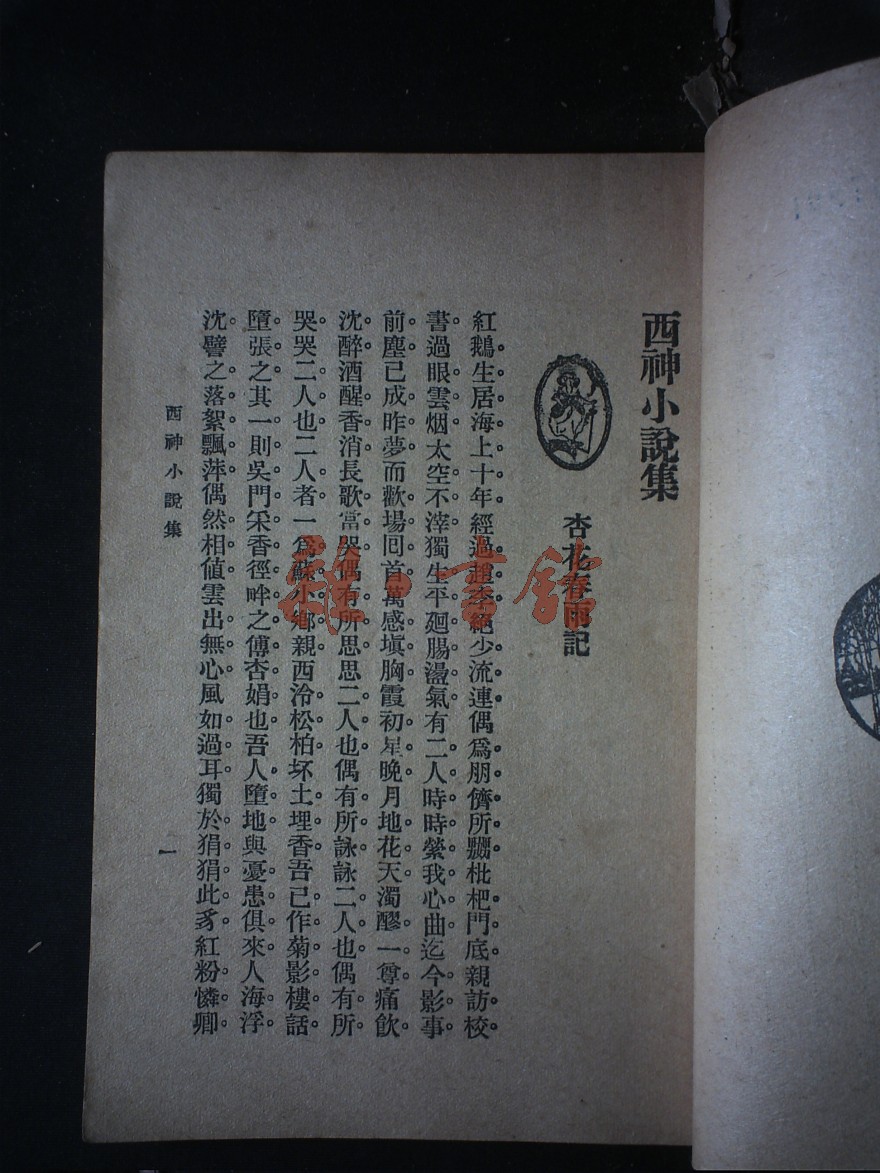 西神小說集
杏花春雨記
紅鵝生居海上十年經過趙李絕少流連偶爲朋儕所嬲枇杷門底親訪校
書過眼雲烟太空不滓獨生平廻腸盪氣有二人時時縈我心曲迄今影事
前塵已成昨夢而歡場回首萬感塡胸霞初星晚月地花天濁醪一尊痛飮
沈醉酒醒香消長歌當哭偶有所思思二人也偶有所詠詠二人也偶有所
哭哭二人也二人者一爲蘇小鄉親西泠松柏坏土埋香吾已作菊影樓話
墮張之其一則吳門采香徑畔之傅杏娟也吾人墮地與憂患俱來人海浮
沈譬之落絮飄萍偶然相値雲出無心風如過耳獨於狷狷此豸紅粉憐卿
西神小說集
一
雜·書館